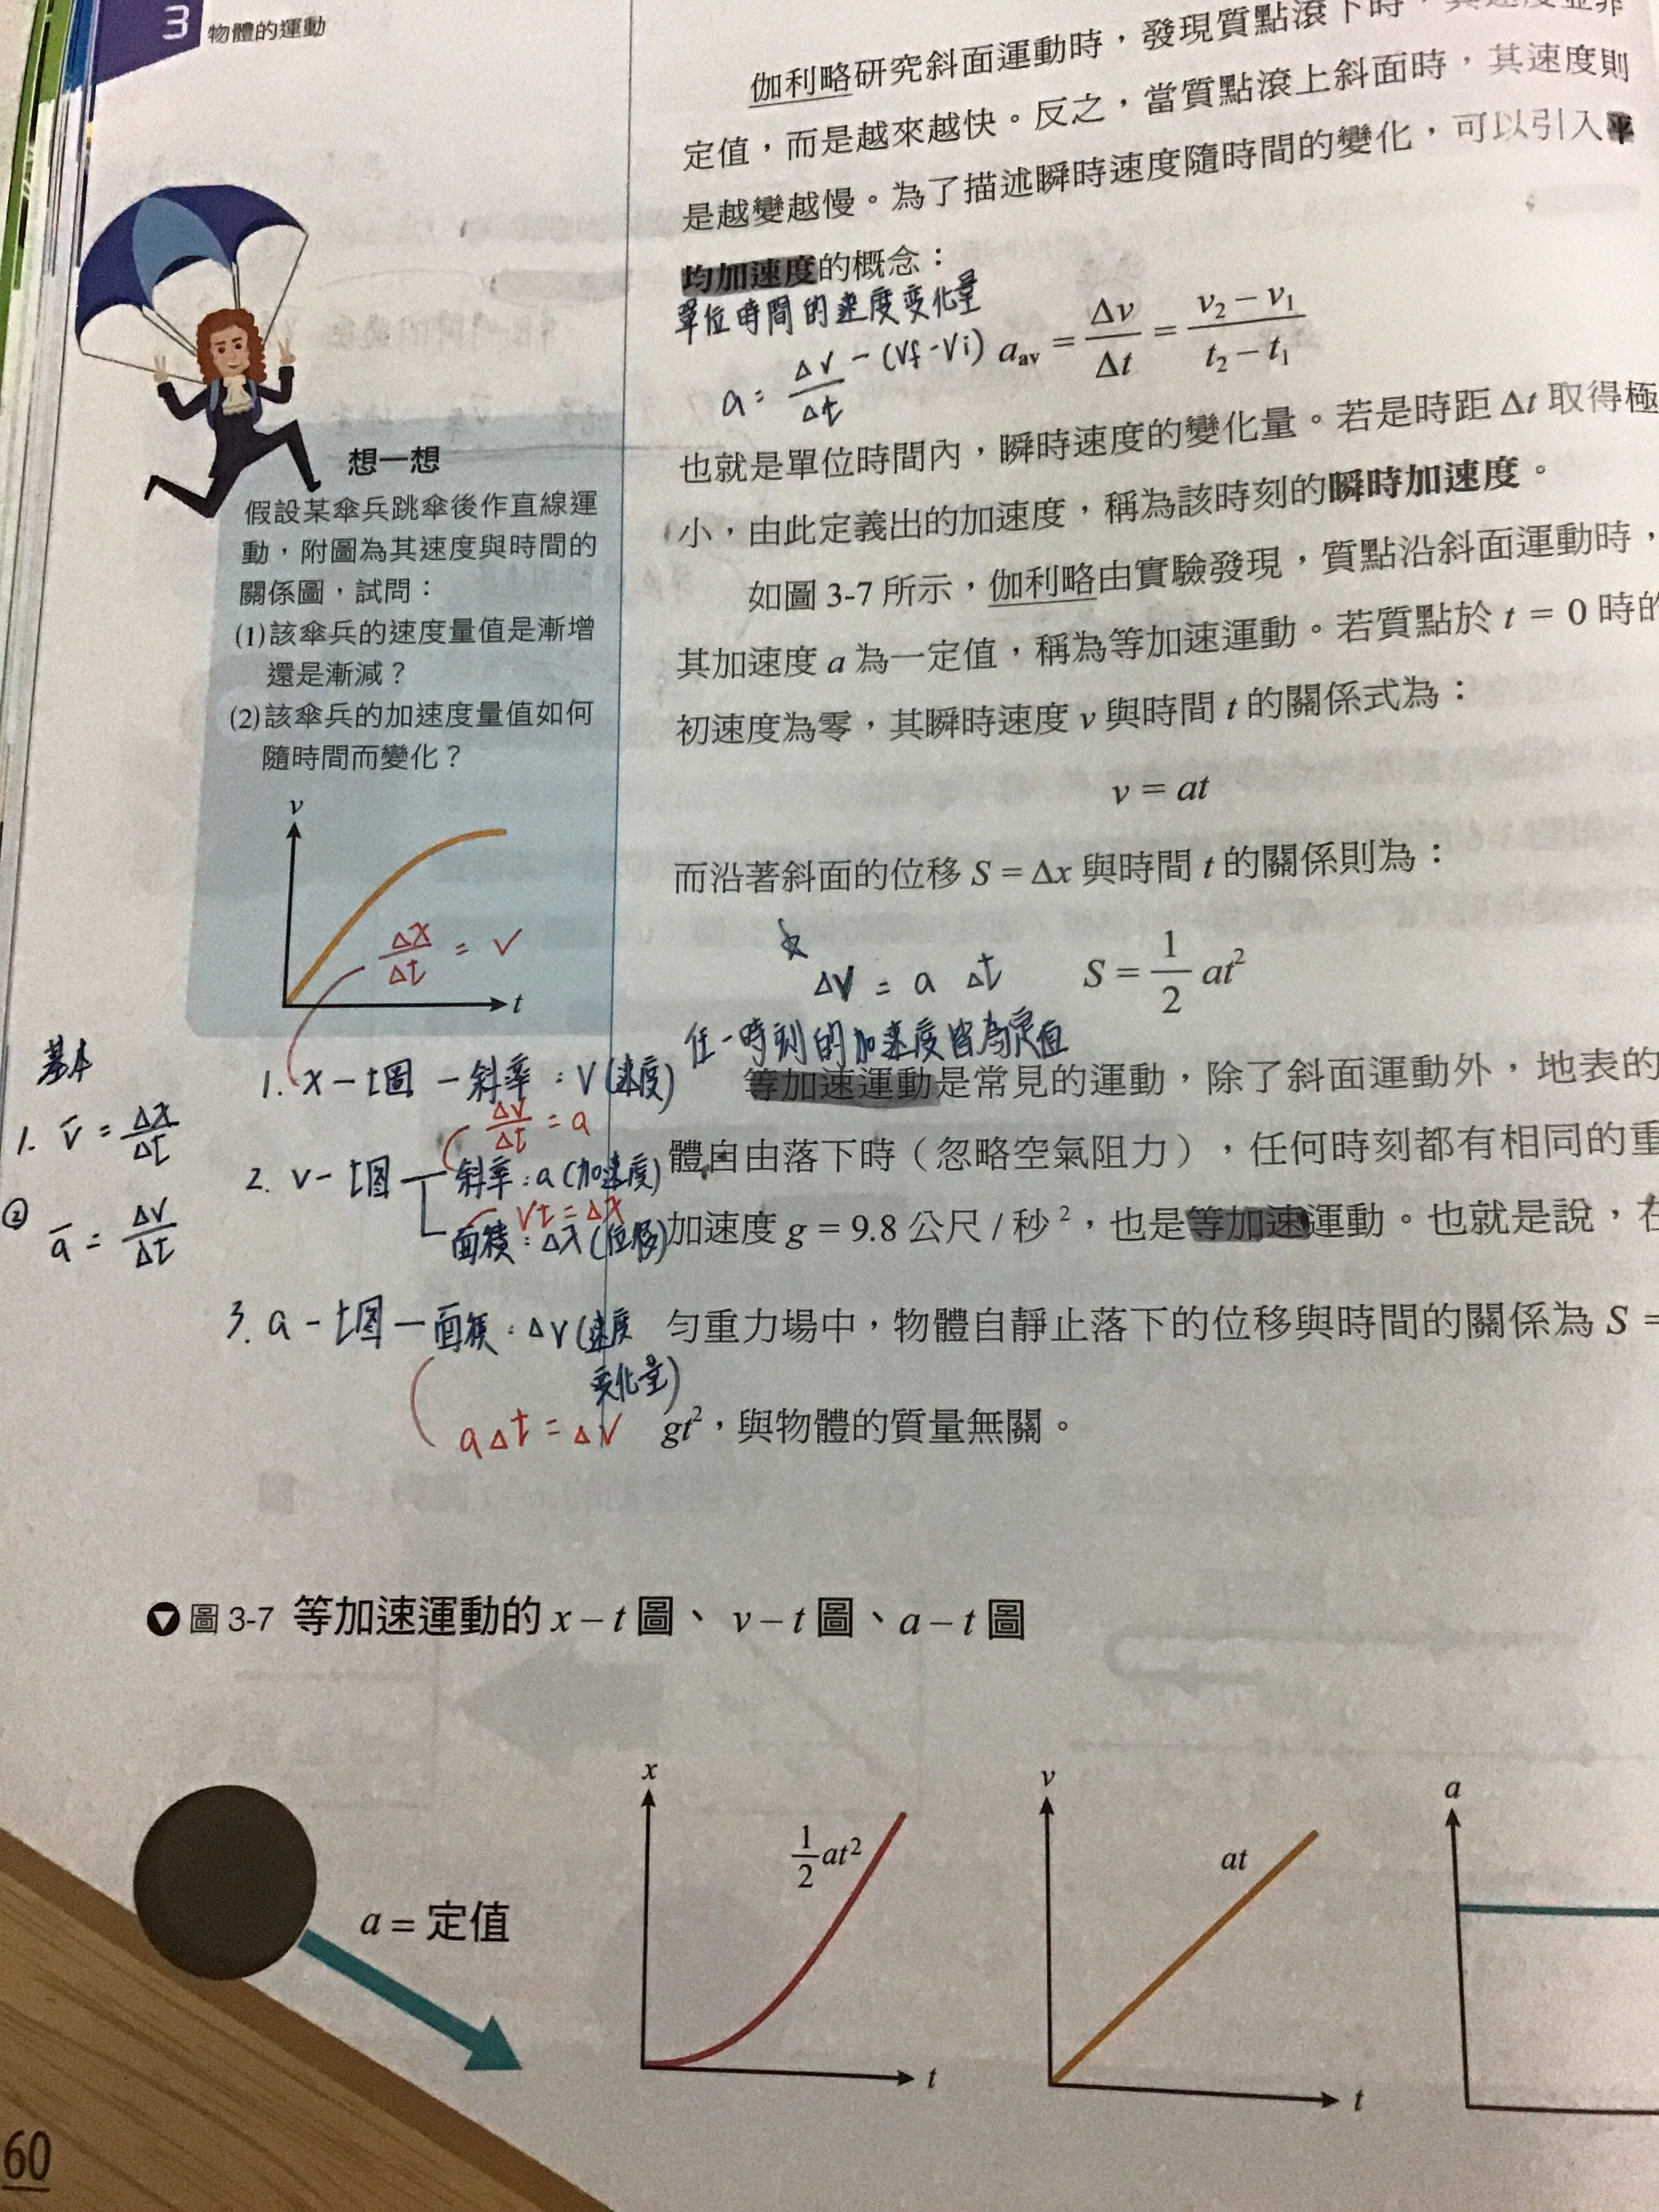 3 物體的運動
伽利略研究斜面運動時，發現質點滾下時，其速度並非
定值，而是越來越快。反之，當質點滾上斜面時，其速度則
是越變越慢。為了描述瞬時速度隨時間的變化，可以引入平
均加速度的概念：
單位時間的速度变化量
a = Δv/Δt - (Vf - Vi)
a_av = Δv/Δt = (v₂ − v₁)/(t₂ − t₁)
也就是單位時間內，瞬時速度的變化量。若是時距 Δt 取得極
小，由此定義出的加速度，稱為該時刻的瞬時加速度。
如圖 3-7 所示，伽利略由實驗發現，質點沿斜面運動時，
其加速度 a 為一定值，稱為等加速運動。若質點於 t = 0 時的
初速度為零，其瞬時速度 v 與時間 t 的關係式為：
v = at
而沿著斜面的位移 S = Δx 與時間 t 的關係則為：
☆
ΔV = a Δt
S = 1/2 at²
任一時刻的加速度皆為定值
等加速運動是常見的運動，除了斜面運動外，地表的
體自由落下時（忽略空氣阻力），任何時刻都有相同的重
加速度 g = 9.8 公尺 / 秒²，也是等加速運動。也就是說，在
勻重力場中，物體自靜止落下的位移與時間的關係為 S =
gt²，與物體的質量無關。
想一想
假設某傘兵跳傘後作直線運
動，附圖為其速度與時間的
關係圖，試問：
(1)該傘兵的速度量值是漸增
還是漸減？
(2)該傘兵的加速度量值如何
隨時間而變化？
v
t
Δx/Δt = v
基本
1. v̄ = Δx/Δt
② ā = Δv/Δt
1. x－t圖 － 斜率：V(速度)
Δv/Δt = a
2. v－t図 斜率：a(加速度)
Vt = Δx
面積：Δx(位移)
3. a－t図 － 面積：ΔV(速度
变化量)
aΔt = ΔV
圖 3-7 等加速運動的 x – t 圖、 v – t 圖、a – t 圖
a = 定值
x
1/2 at²
t
v
at
t
a
60